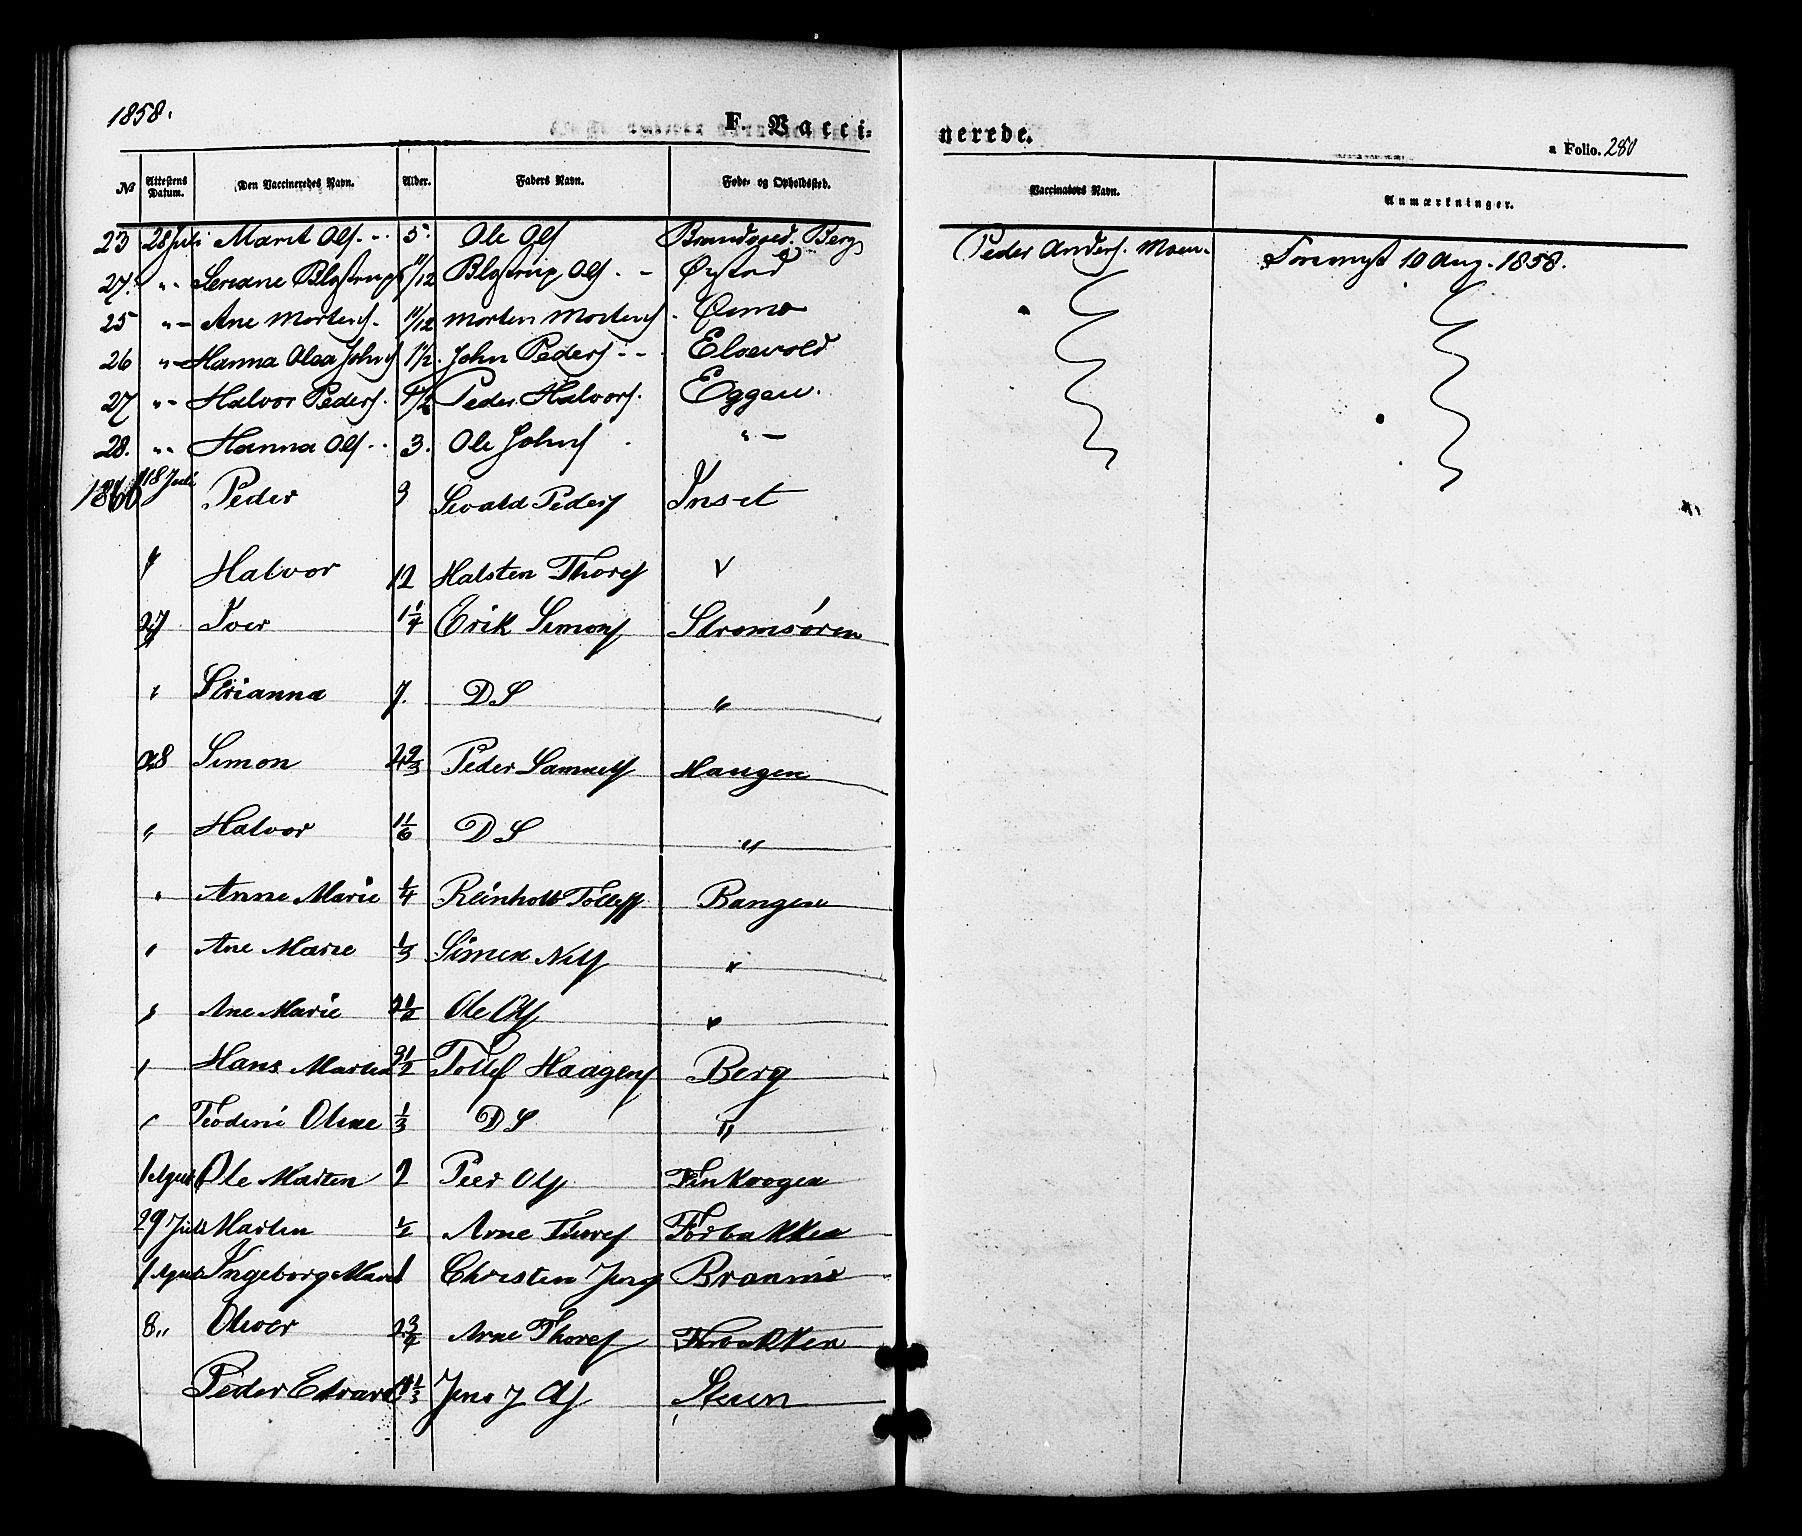 1858.
F. Vacci=
nerede.
a Folio. 280
No Attestens Datum. Den Vaccineredes Navn. Alder. Faders Navn. Føde- og Opholdsted. Vaccinators Navn. Anmærkninger.
23 28 Juli Marit Ols. 5 Ole Ols Berg Peder Anders. Moen. 10 Aug. 1858.
27. " Blostrup Ols. Ørstad
25 " Ane Mortens. 11/12 Morten Mortens. Øsmo
26 " Hanna Olea Johns 1 1/2 John Peders Elvevold
27 " Halvor Peders. Peder Halvors. Eggen.
28. " Hanna Ols 3. Ole Johns "
1860 18 Juli Peder 9 Sivald Peders Inset
" Halvor 12 Halsten Thores "
27 Iver 1 1/4 Erik Simons Stromsören
" Serianna 7. DS "
28 Simon 2 2/3 Peder Samuels Haugen
" Halvor 1 1/6 DS "
" Anne Marie 1/4 Reinholt Tollefs Bangen
" Ane Marie 1/3 Simen Nils "
" Ane Marie 2 1/2 Ole Ols "
" Hans Martin 3 1/2 Tollef Haagens Berg
" Oline 1/3 DS "
1 August Ole Marten 2 Peer Ols Finkrogen
29 Juli Marten 1/2 Arne Thores Forbakken
1 August Ingeborg Marie 1 Christen Jens
8 " Oliver 2 3/4 Arne Thores Forbakken
Peder Edvard 1/3 Jens J Ols Steen